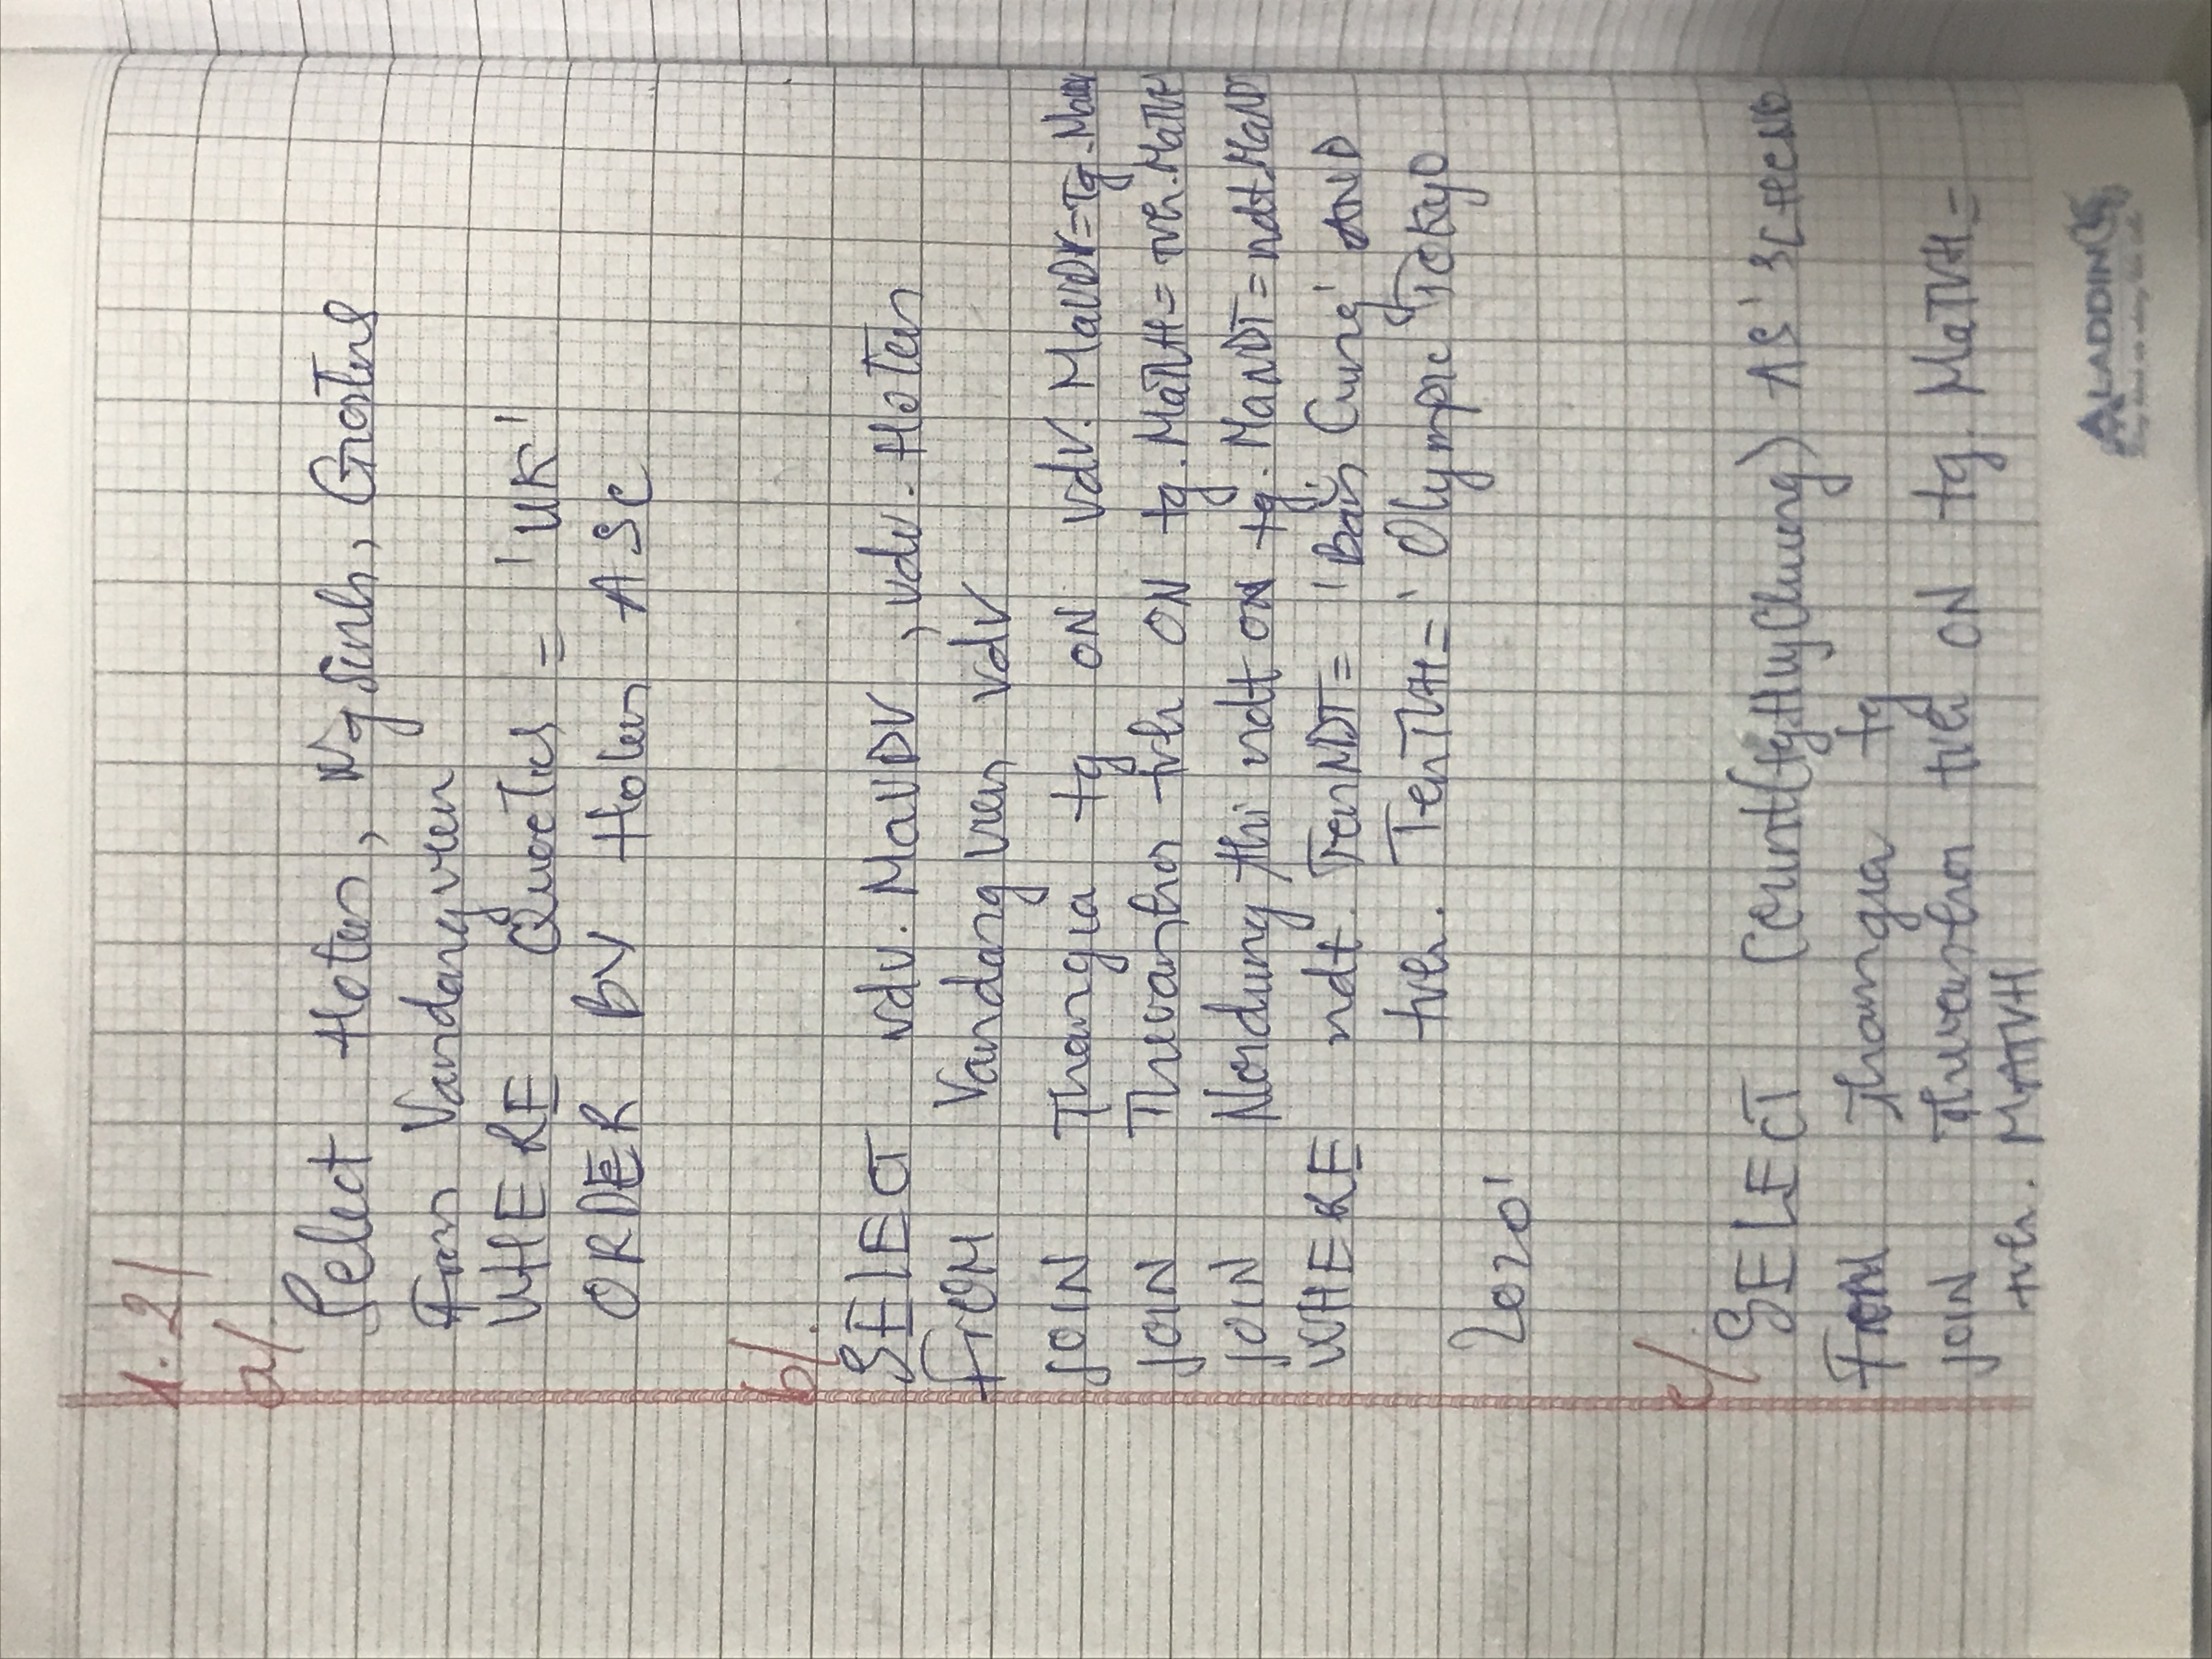 1.2/
a/.
Select Hoten, NgSinh, GioiTinh
From Vandongvien
WHERE QuocTich = 'UK'
ORDER BY Hoten ASC
b/.
SELECT vdv. MaVDV , vdv. HoTen
FROM Vandongvien vdv
JOIN Thamgia tg ON vdv. MaVDV=Tg.MaVDV
JOIN Thevanhoi tvh ON tg. MaTVH= tvh.MaTVH
JOIN Noidung thi ndt ON tg. MaNDT= ndt.MaNDT
WHERE ndt. TenNDT= 'Bắn Cung' AND
tvh. TenTVH= 'Olympic Tokyo
2020'
c/
SELECT Count(tg.HuyChuong) AS
FROM Thamgia tg
JOIN Thevanhoi tvh ON tg. MaTVH=
tvh. MATVH
ALADDIN